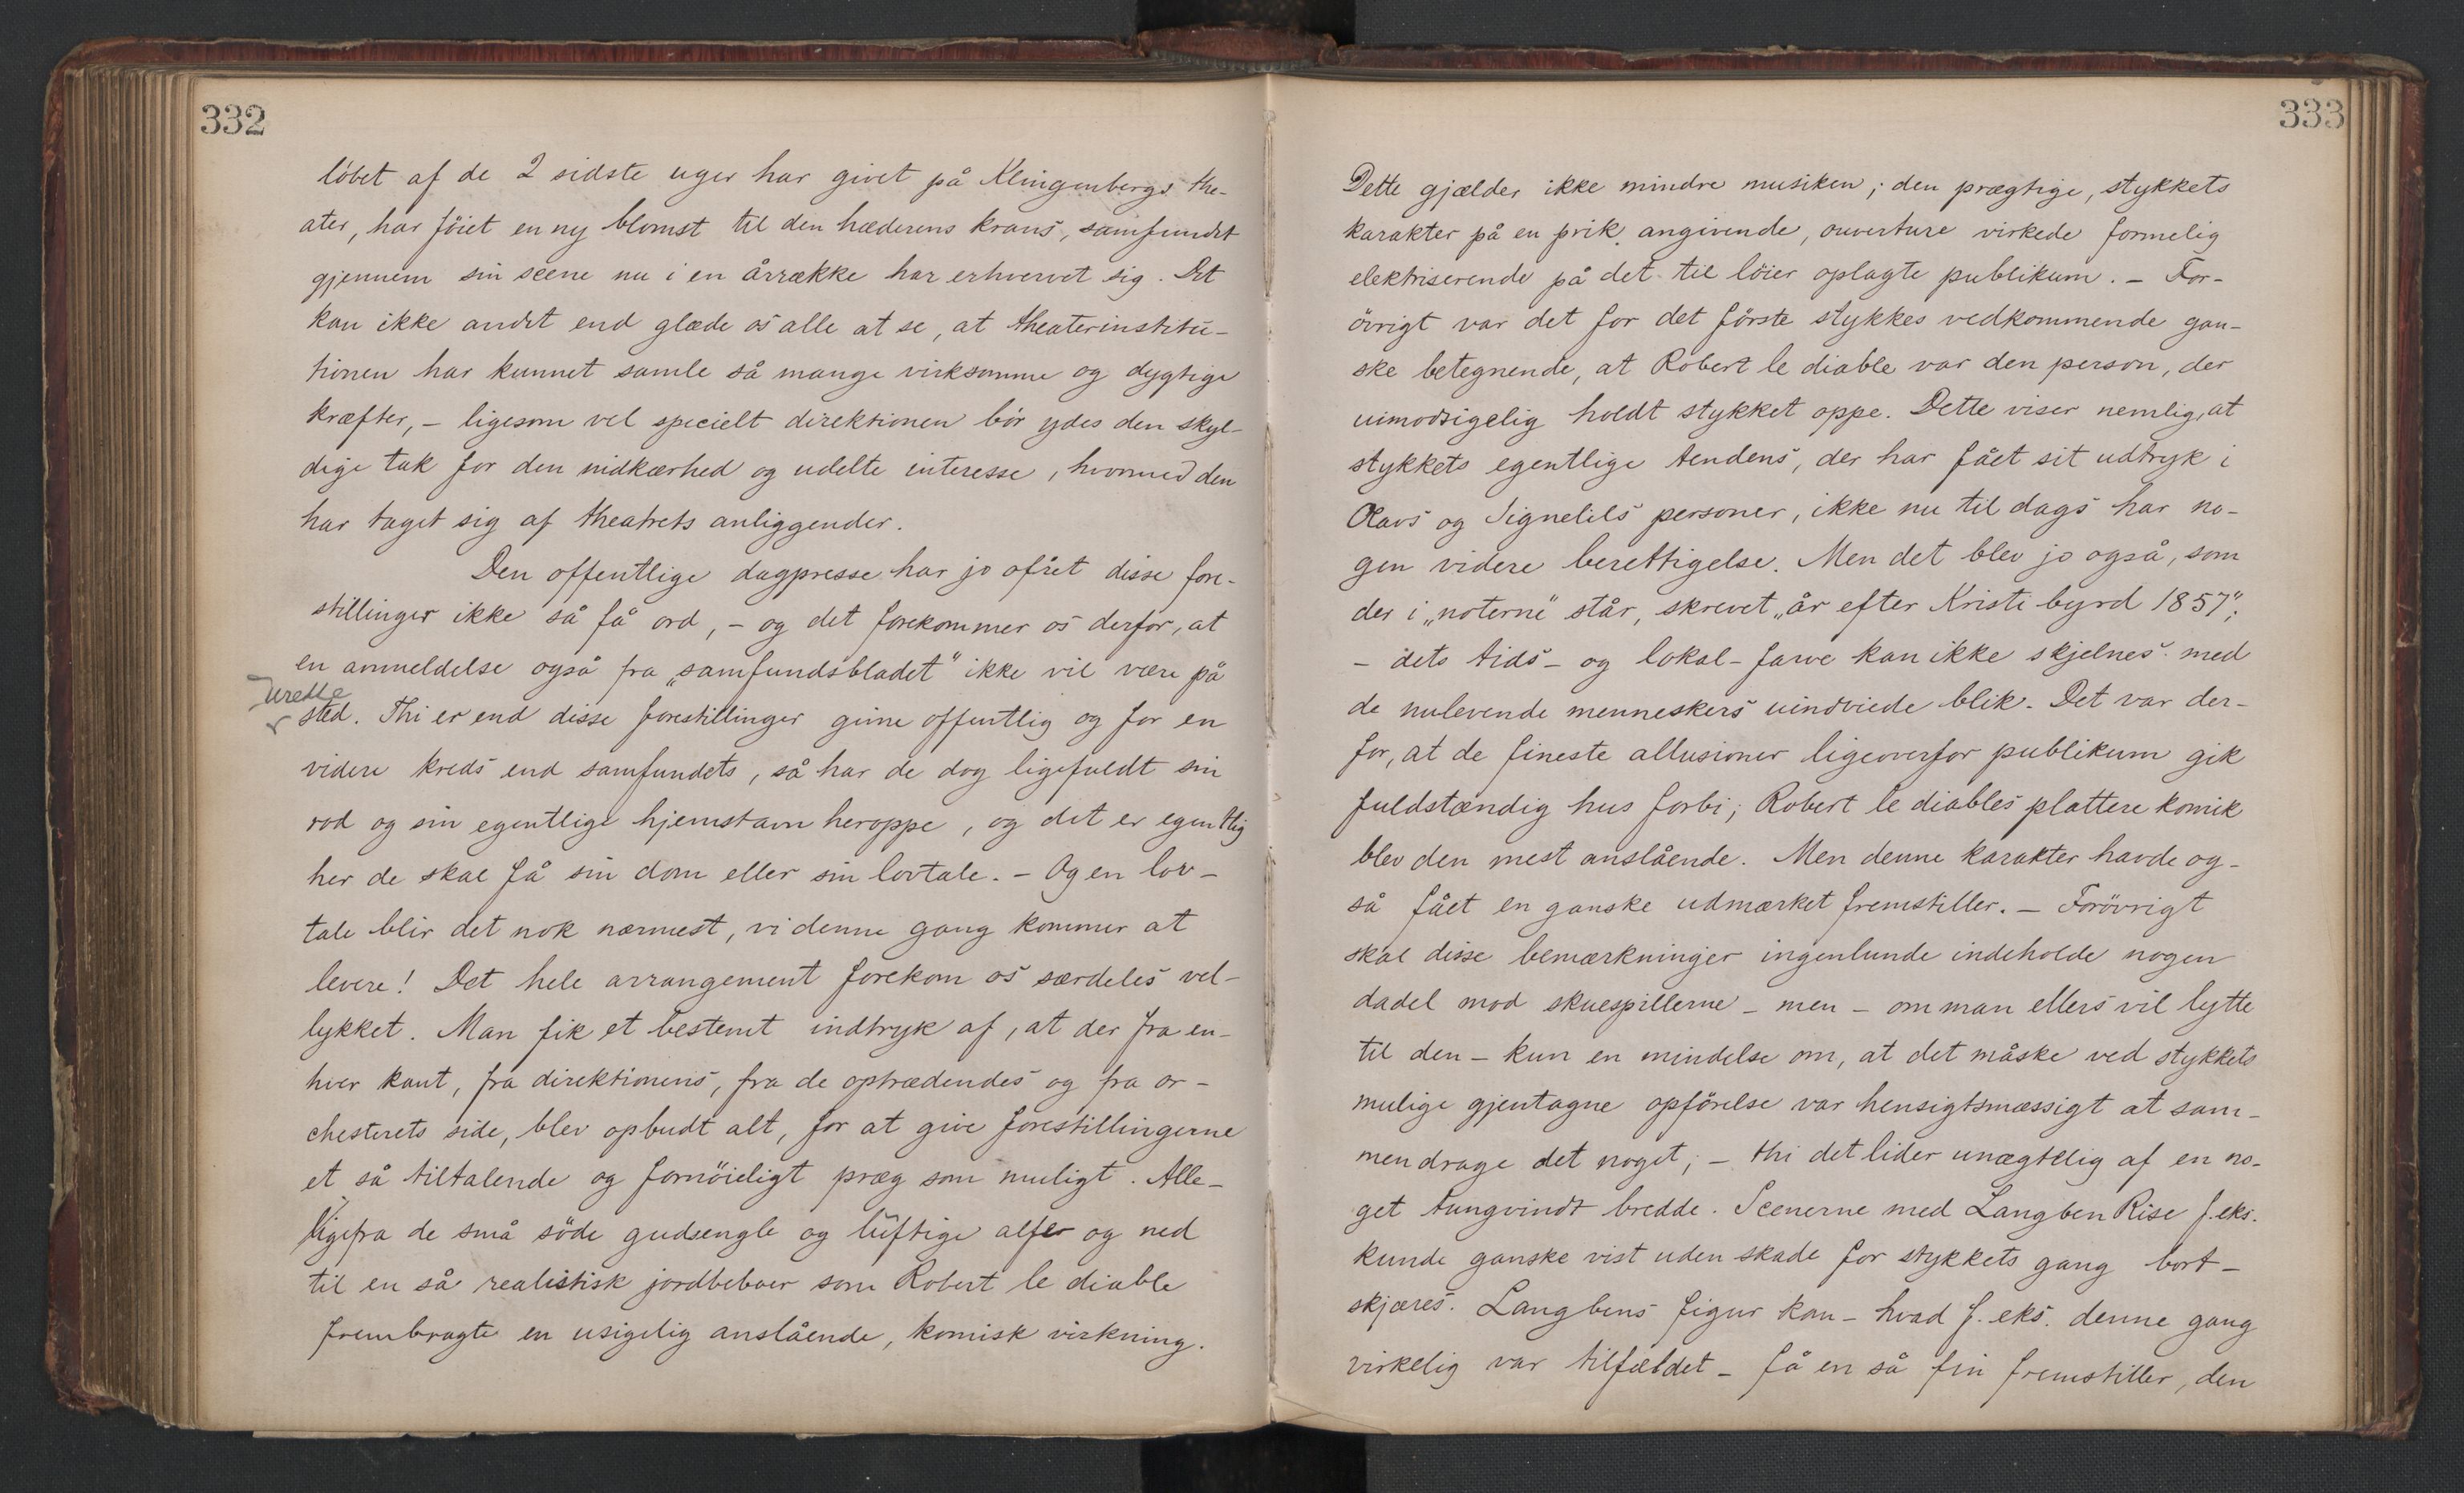 332
löbet af de 2 sidste uger har givet på Klingenbergs the-
ater, har föiet en ny blomst til den hæderens krans, samfundet
gjennem sin scene nu i en årrække har erhvervet sig. Det
kan ikke andet end glæde os alle at se, at theaterinstitu-
tionen har kunnet samle så mange virksomme og dygtige
kræfter, – ligesom vel specielt direktionen bör ydes den skyl-
dige tak for den nidkærhed og udelte interesse, hvormed den
har taget sig af theatrets anliggender.
Den offentlige dagpresse har jo ofret disse fore-
stillinger ikke så få ord, – og det forekommer os derfor, at
en anmeldelse også fra „samfundsbladet" ikke vil være på
urette
sted. Thi er end disse forestillinger givne offentlig og for en
videre kreds end samfundets, så har de dog ligefuldt sin
rod og sin egentlige hjemstavn heroppe, og det er egentlig
her de skal få sin dom eller sin lovtale. – Og en lov-
tale blir det nok nærmest, vi denne gang kommer at
levere! Det hele arrangement forekom os særdeles vel-
lykket. Man fik et bestemt indtryk af, at der fra en-
hver kant, fra direktionens, fra de optrædendes og fra or-
chesterets side, blev opbudt alt, for at give forestillingerne
et så tiltalende og fornöieligt præg som muligt. Alle–
ligefra de små söde gudsengle og luftige alfer og ned
til en så realistisk jordbeboer som Robert le diable
frembragte en usigelig anslående, komisk virkning.
333
Dette gjælder ikke mindre musiken; den prægtige, stykkets
karakter på en prik angivende, ouverture virkede formelig
elektriserende på det til löier oplagte publikum. – For-
övrigt var det for det förste stykkes vedkommende gan-
ske betegnende, at Robert le diable var den person, der
uimodsigelig holdt stykket oppe. Dette viser nemlig, at
stykkets egentlige tendens, der har fået sit udtryk i
Olavs og Signelils personer, ikke nu til dags har no-
gen videre berettigelse. Men det blev jo også, som
der i „noterne" står, skrevet „år efter Kristi byrd 1857";
– dets tids- og lokal-farve kan ikke skjelnes med
de nulevende menneskers uindviede blik. Det var der-
for, at de fineste allusioner ligeoverfor publikum gik
fuldstændig hus forbi; Robert le diables plattere komik
blev den mest anslående. Men denne karakter havde og-
så fået en ganske udmærket fremstiller. – Forövrigt
skal disse bemærkninger ingenlunde indeholde nogen
dadel mod skuespillerne – men – om man ellers vil lytte
til den – kun en mindelse om, at det måske ved stykkets
mulige gjentagne opförelse var hensigtsmæssigt at sam-
mendrage det noget; – thi det lider unægtelig af en no-
get tungvindt bredde. Scenerne med Langben Rise f. eks.
kunde ganske vist uden skade for stykkets gang bort-
skjæres. Langbens figur kan – hvad f. eks. denne gang
virkelig var tilfældet – få en så fin fremstiller, den